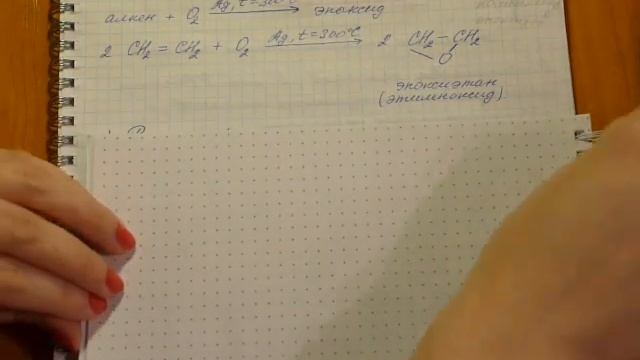 алкен + O₂ Ag, t = 300°C → эпоксид
2 CH₂ = CH₂ + O₂ Ag, t = 300°C → 2 CH₂ – CH₂
O
эпоксиэтан
(этиленоксид)